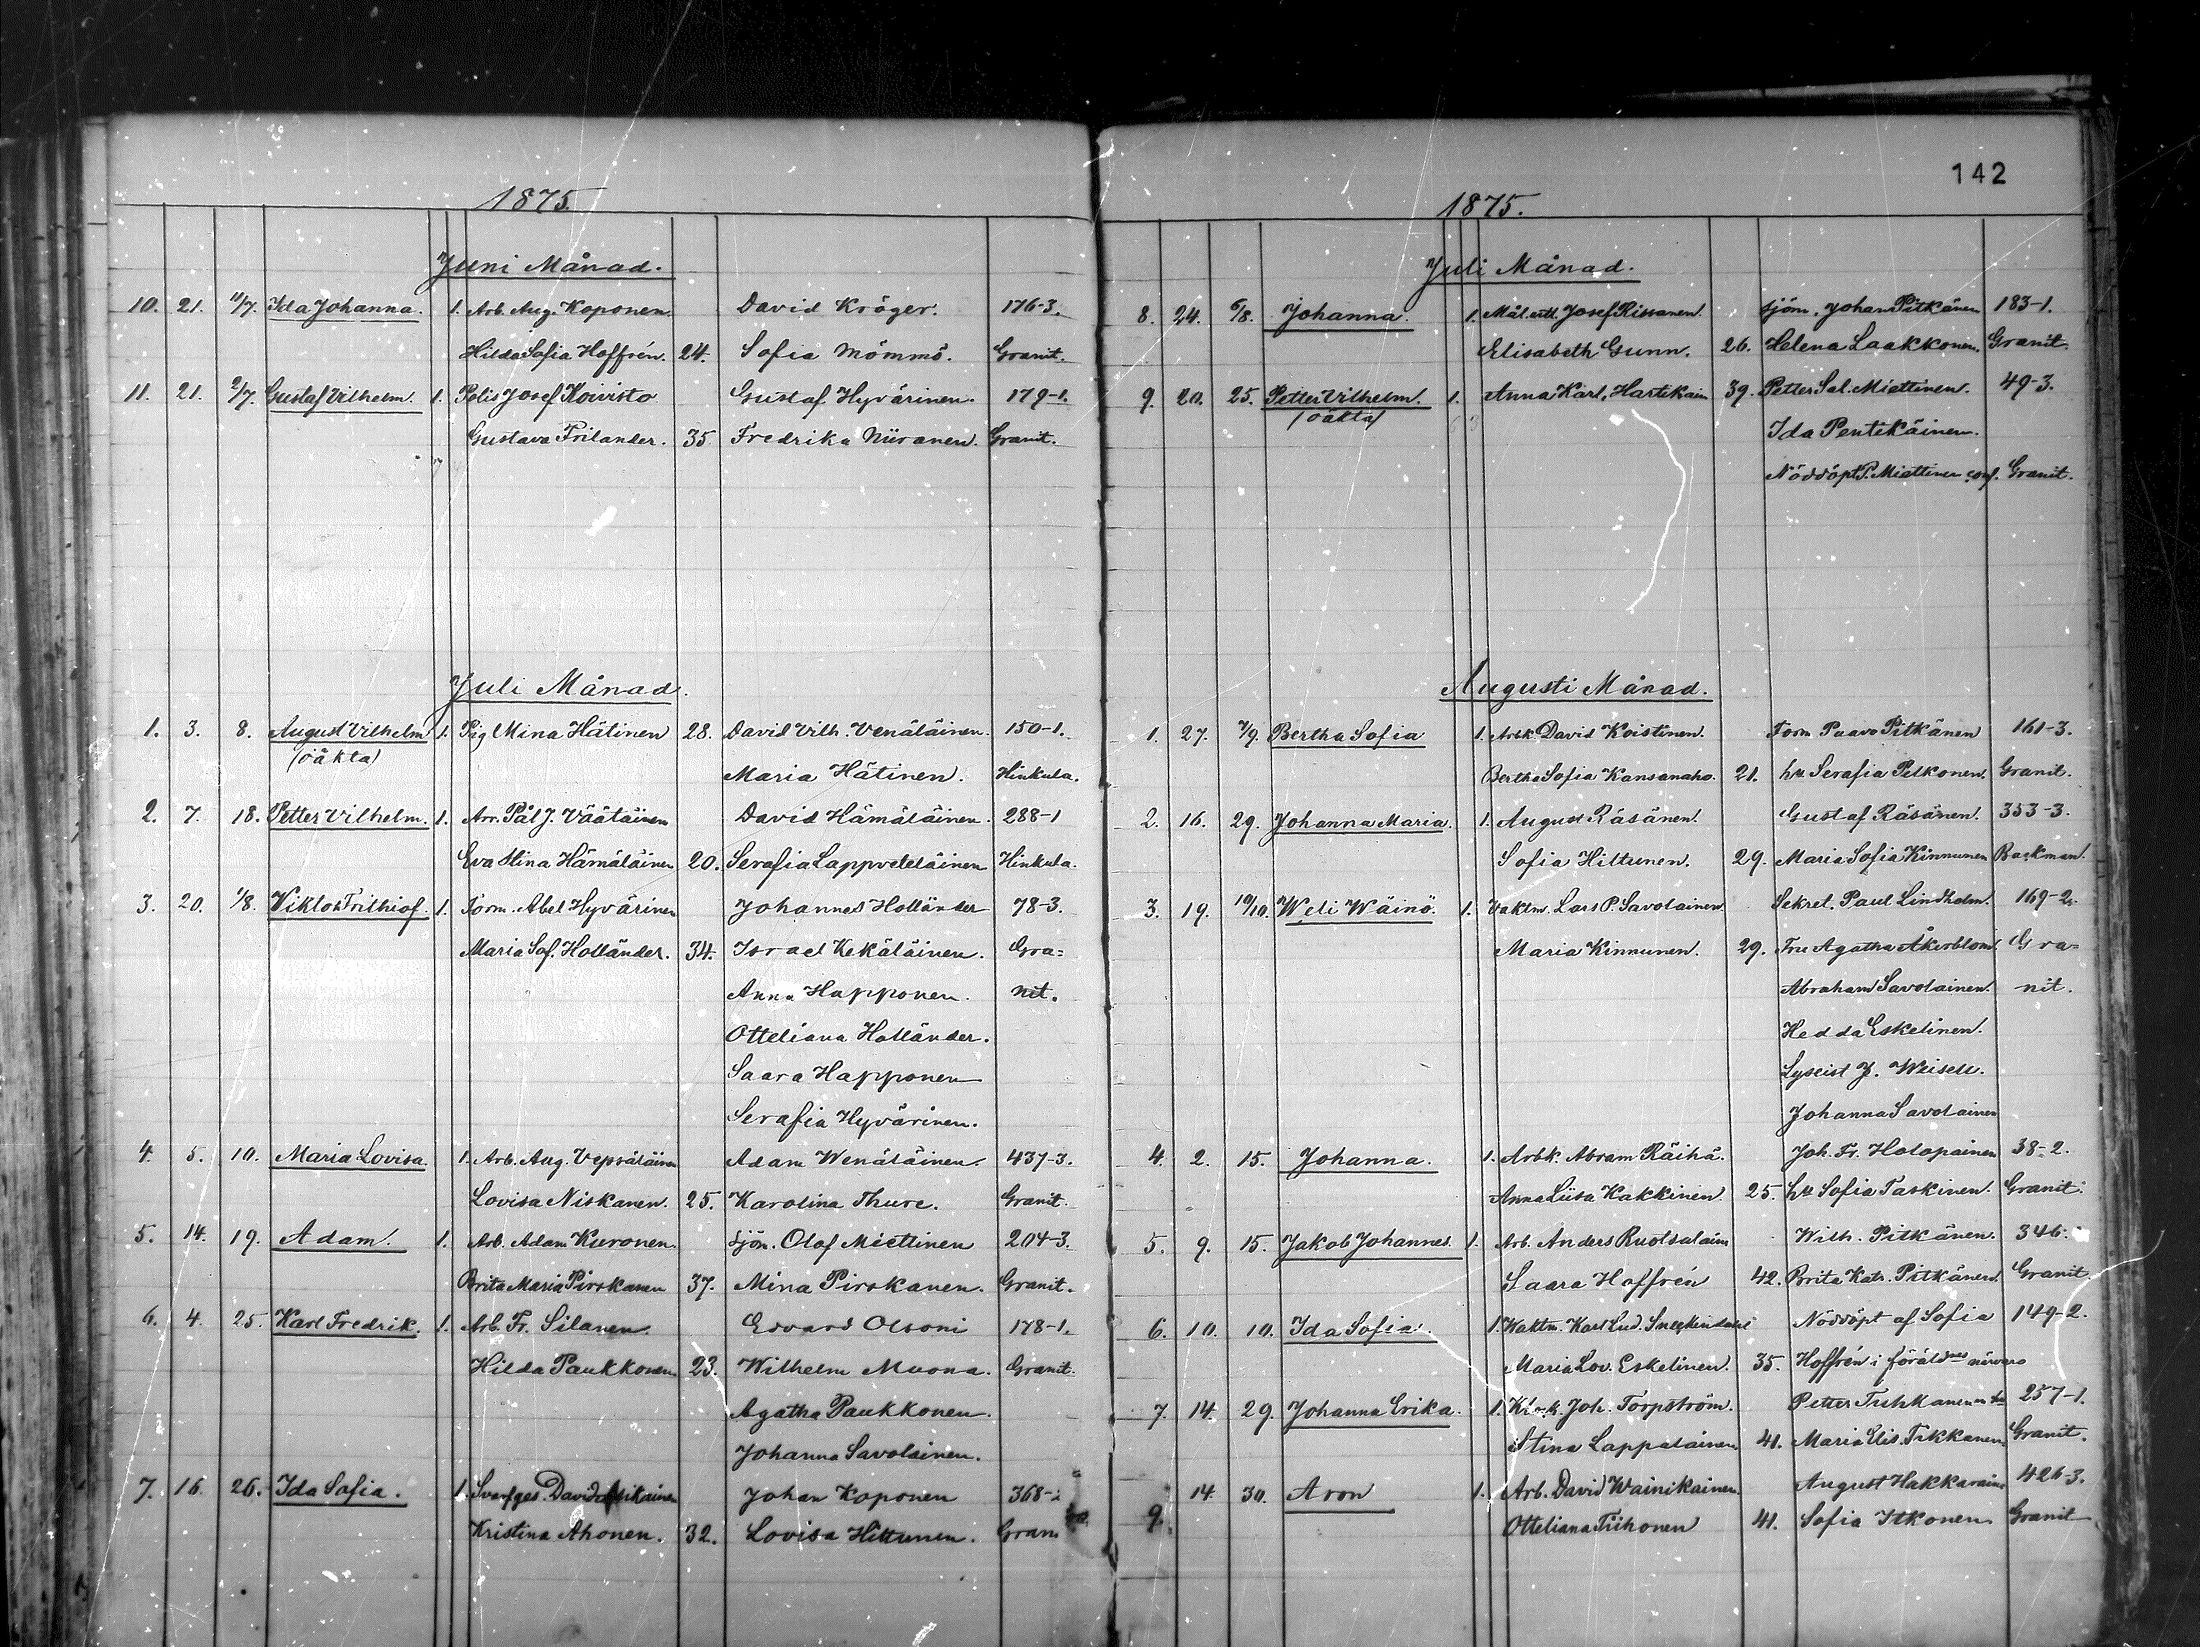 142
1875.
Juni Månad.
10. 21. 11/7. Ida Johanna. 1. Arb. Aug. Koponen. David Kröger. 176-3.
Hilda Sofia Hoffrén. 24. Sofia Mömmö. Granit.
11. 21. 2/7. Gustaf Vilhelm. 1. Polis Josef Koivisto Gustaf Hyvärinen. 179-1.
Gustava Frilander. 35. Fredrika Niiranen. Granit.
Juli Månad.
1. 3. 8. August Vilhelm 1. Pig Mina Hätinen 28. David Vilh. Venäläinen. 150-1.
(oäkta) Maria Hätinen. Hinkula.
2. 7. 18. Petter Vilhelm. 1. Arr. Pål J. Väätäinen David Hämäläinen. 288-1
Eva Stina Hämäläinen 20. Serafia Lappveteläinen Hinkula.
3. 20. 1/8. Viktor Frithiof. 1. Form. Abel Hyvärinen Johannes Holländer 78-3.
Maria Sof. Holländer. 34. Israel Kekäläinen. Gra=
Anna Happonen. nit.
Otteliana Holländer.
Saara Happonen
Serafia Hyvärinen.
4. 5. 10. Maria Lovisa. 1. Arb. Aug. Vepsäläinen Adam Wenäläinen. 437-3.
Lovisa Niskanen. 25. Karolina Thure. Granit.
5. 14. 19. Adam. 1. Arb. Adam Kuronen. Sjöm. Olof Miettinen 204-3.
Brita Maria Pirskanen 37. Mina Pirskanen. Granit.
6. 4. 25. Karl Fredrik. 1. Arb. Fr. Silanen. Edvard Olsoni 178-1.
Hilda Paukkonen 23. Wilhelm Muona. Granit.
Agatha Paukkonen.
Johanna Savolainen.
7. 16. 26. Ida Sofia. 1. Svarfges. David Johan Koponen 368-
Kristina Ahonen. 32. Lovisa Hittunen. Gran
1875.
Juli Månad.
8. 24. 6/8. Johanna. 1. Mål. Josef Rissanen. Sjöm. Johan Pitkänen 183-1.
Elisabeth Gunn. 26. Helena Laakkonen. Granit.
9. 20. 25. Petter Vilhelm. 1. Anna Karl. Hartikain 39. Petter Sal. Miettinen. 49-3.
(oäkta) Ida Pentikäinen.
Nöddöpt P. Miettinen conf. Granit.
Augusti Månad.
1. 27. 7/9. Bertha Sofia 1. Arbk. David Koistinen. Form Paavo Pitkänen 161-3.
Bertha Sofia Kansanaho. 21. hu Serafia Pelkonen. Granit.
2. 16. 29. Johanna Maria. 1. August Räsänen. Gustaf Räsänen. 353-3.
Sofia Hiltunen. 29. Maria Sofia Kinnunen Backman.
3. 19. 10/10. Weli Wäinö. 1. Vaktm. Lars P. Savolainen. Sekret. Paul Lindholm. 169-2.
Maria Kinnunen. 29. Fru Agatha Åkerblom. Gra-
Abraham Savolainen. nit.
Hedda Eskelinen.
Lyseist J. Weisell.
Johanna Savolainen
4. 2. 15. Johanna. 1. Arbk. Abram Räihä. Joh. Fr. Holopainen 38-2.
Anna Liisa Kakkinen. 25. hu Sofia Taskinen. Granit.
5. 9. 15. Jakob Johannes. 1. Arb. Anders Ruotsalain Wilh. Pitkänen. 346.
Saara Hoffrén 42. Brita Katr. Pitkänen. Granit.
6. 10. 10. Ida Sofia. 1. Waktm. Karl Lud. Nöddöpt af Sofia 149-2.
Maria Lov. Eskelinen. 35. Hoffrén i föräldnes närvaro
7. 14. 29. Johanna Erika. 1. Joh. Torpström. Petter Tuhkanen 257-1.
Stina Lappalainen 41. Maria Elis. Tikkanen Granit.
9. 14. 30. Aron 1. Arb. David Wainikainen. August Hakkarain 426-3.
Otteliana Tiihonen 41. Sofia Itkonen Granit